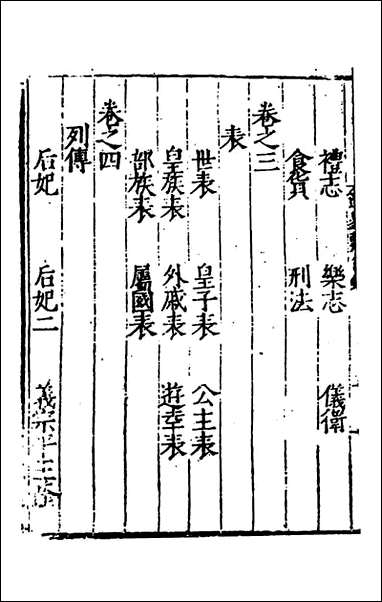 禮志 樂志 儀衛
食貨 刑法
卷之三
表
世表 皇子表 公主表
皇族表 外戚表 遊幸表
部族表 屬國表
卷之四
列傳
后妃 后妃二 義宗平王隆